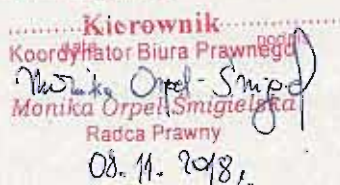 Kierownik
data podpis
Koordynator Biura Prawnego
Monika Orpel-Śmigiel
Monika Orpel-Śmigielska
Radca Prawny
08.11.2018r.